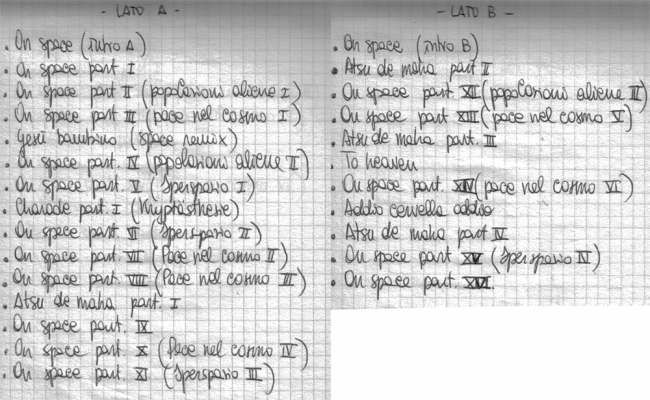 - LATO A -
. On space (intro A)
. On space part I
. On space part II (popolazioni aliene I)
. On space part III (pace nel cosmo I)
. Gesù bambino (space remix)
. On space part. IV (popolazioni aliene II)
. On space part. V (Iperspazio I)
. Charade part. I (Kryptästhesie)
. On space part. VI (Iperspazio II)
. On space part. VII (Pace nel cosmo II)
. On space part. VIII (Pace nel cosmo III)
. Atsu de maha part. I
. On space part. IX
. On space part. X (Pace nel cosmo IV)
. On space part. XI (Iperspazio III)
- LATO B -
. On space (intro B)
. Atsu de maha part II
. On space part. XII (popolazioni aliene III)
. On space part. XIII (pace nel cosmo V)
. Atsu de maha part. III
. To heaven
. On space part. XIV (pace nel cosmo VI)
. Addio cervella addio
. Atsu de maha part IV
. On space part XV (Iperspazio IV)
. On space part. XVI.